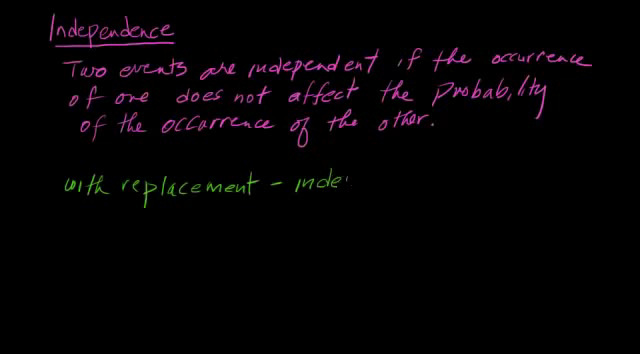 Independence
Two events are independent if the occurrence
of one does not affect the Probability
of the occurrence of the other.
with replacement - inde